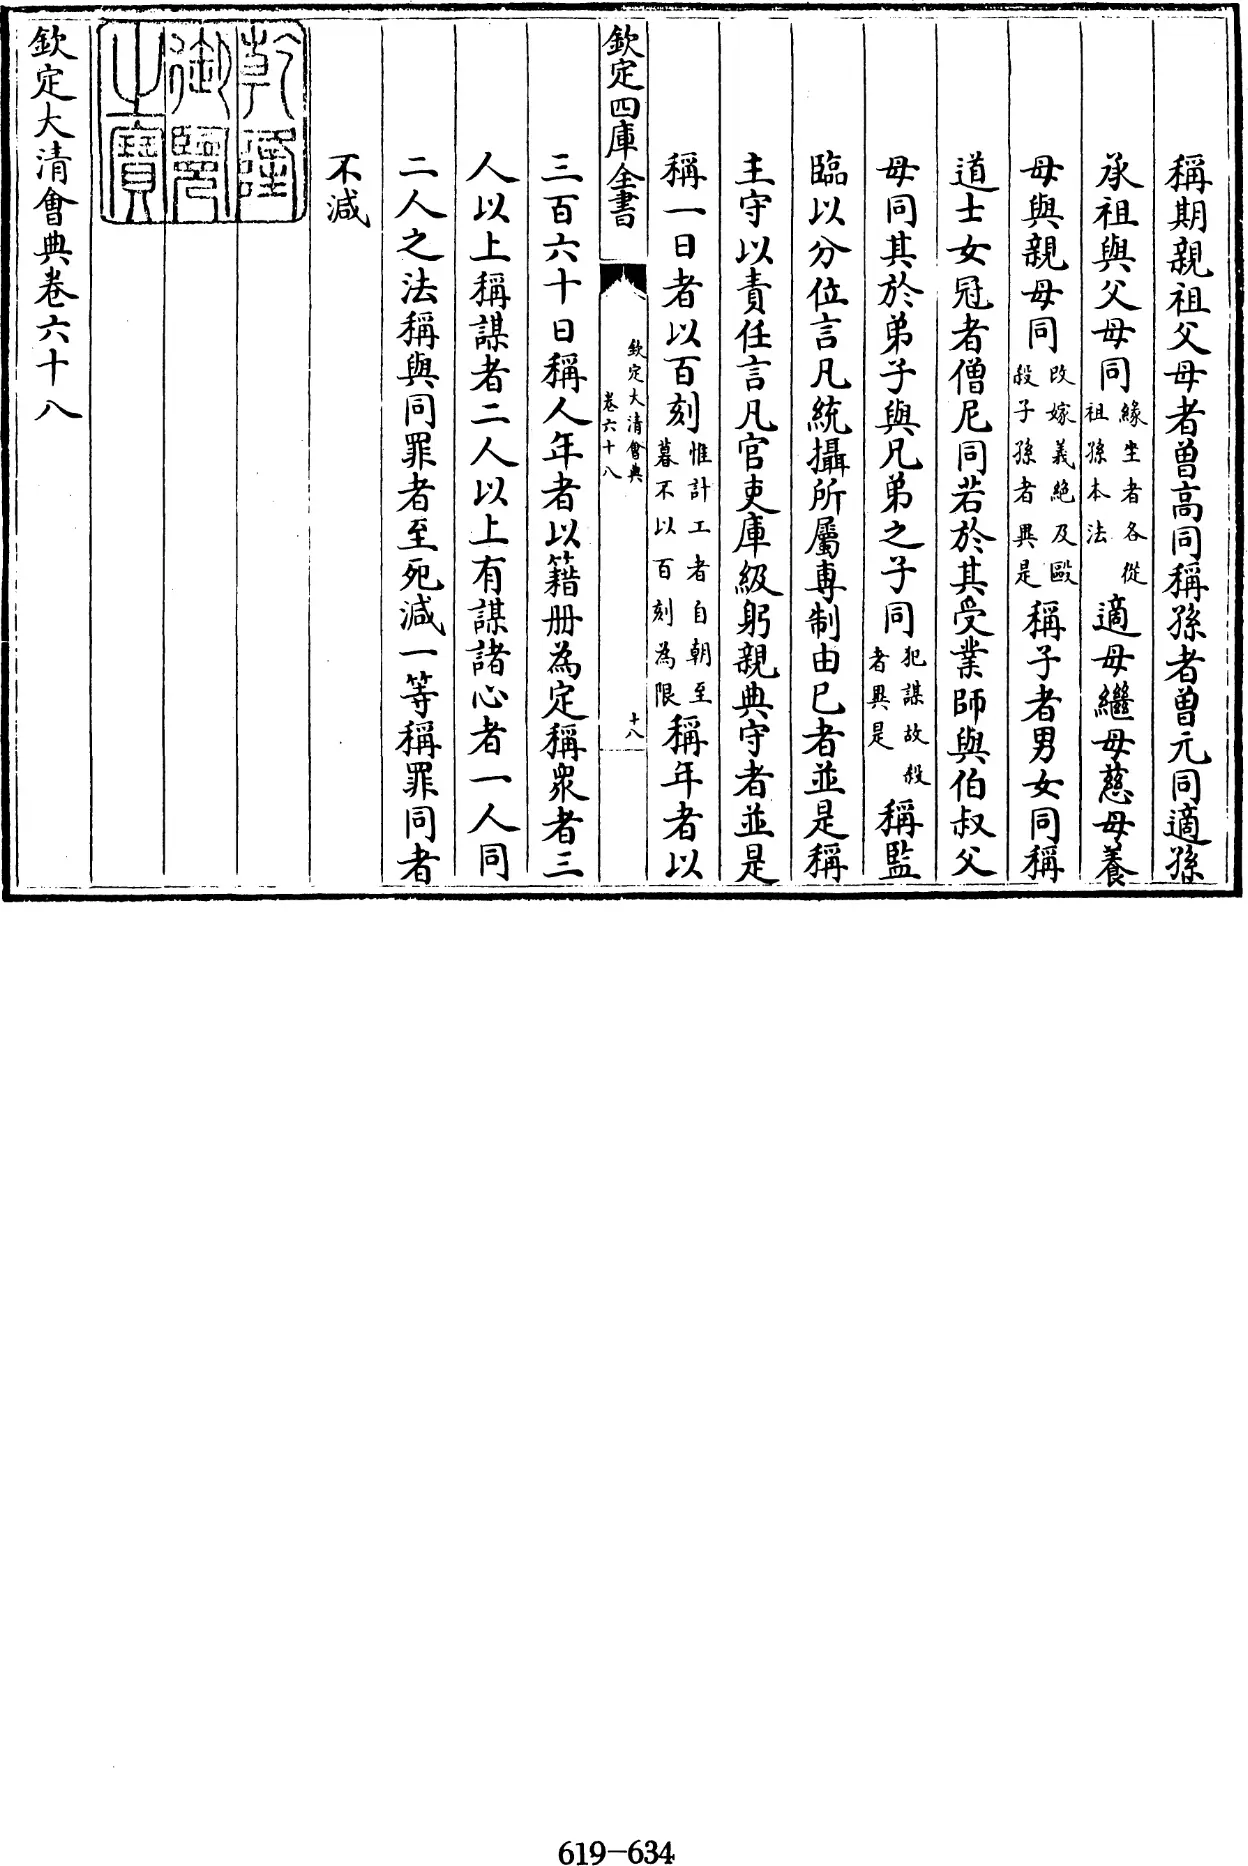 稱期親祖父母者曾高同稱孫者曾元同適孫
承祖與父母同緣坐者各從祖孫本法適母繼母慈母養
母與親母同改嫁義絶及毆殺子孫者異是稱子者男女同稱
道士女冠者僧尼同若於其受業師與伯叔父
母同其於弟子與兄弟之子同犯謀故殺者異是稱監
臨以分位言凡統攝所屬專制由已者並是稱
主守以責任言凡官吏庫級躬親典守者並是
稱一日者以百刻惟計工者自朝至暮不以百刻為限稱年者以
欽定四庫全書
欽定大清會典
卷六十八
十八
三百六十日稱人年者以籍册為定稱衆者三
人以上稱謀者二人以上有謀諸心者一人同
二人之法稱與同罪者至死減一等稱罪同者
不減
乾隆御覽之寶
欽定大清會典卷六十八
619-634